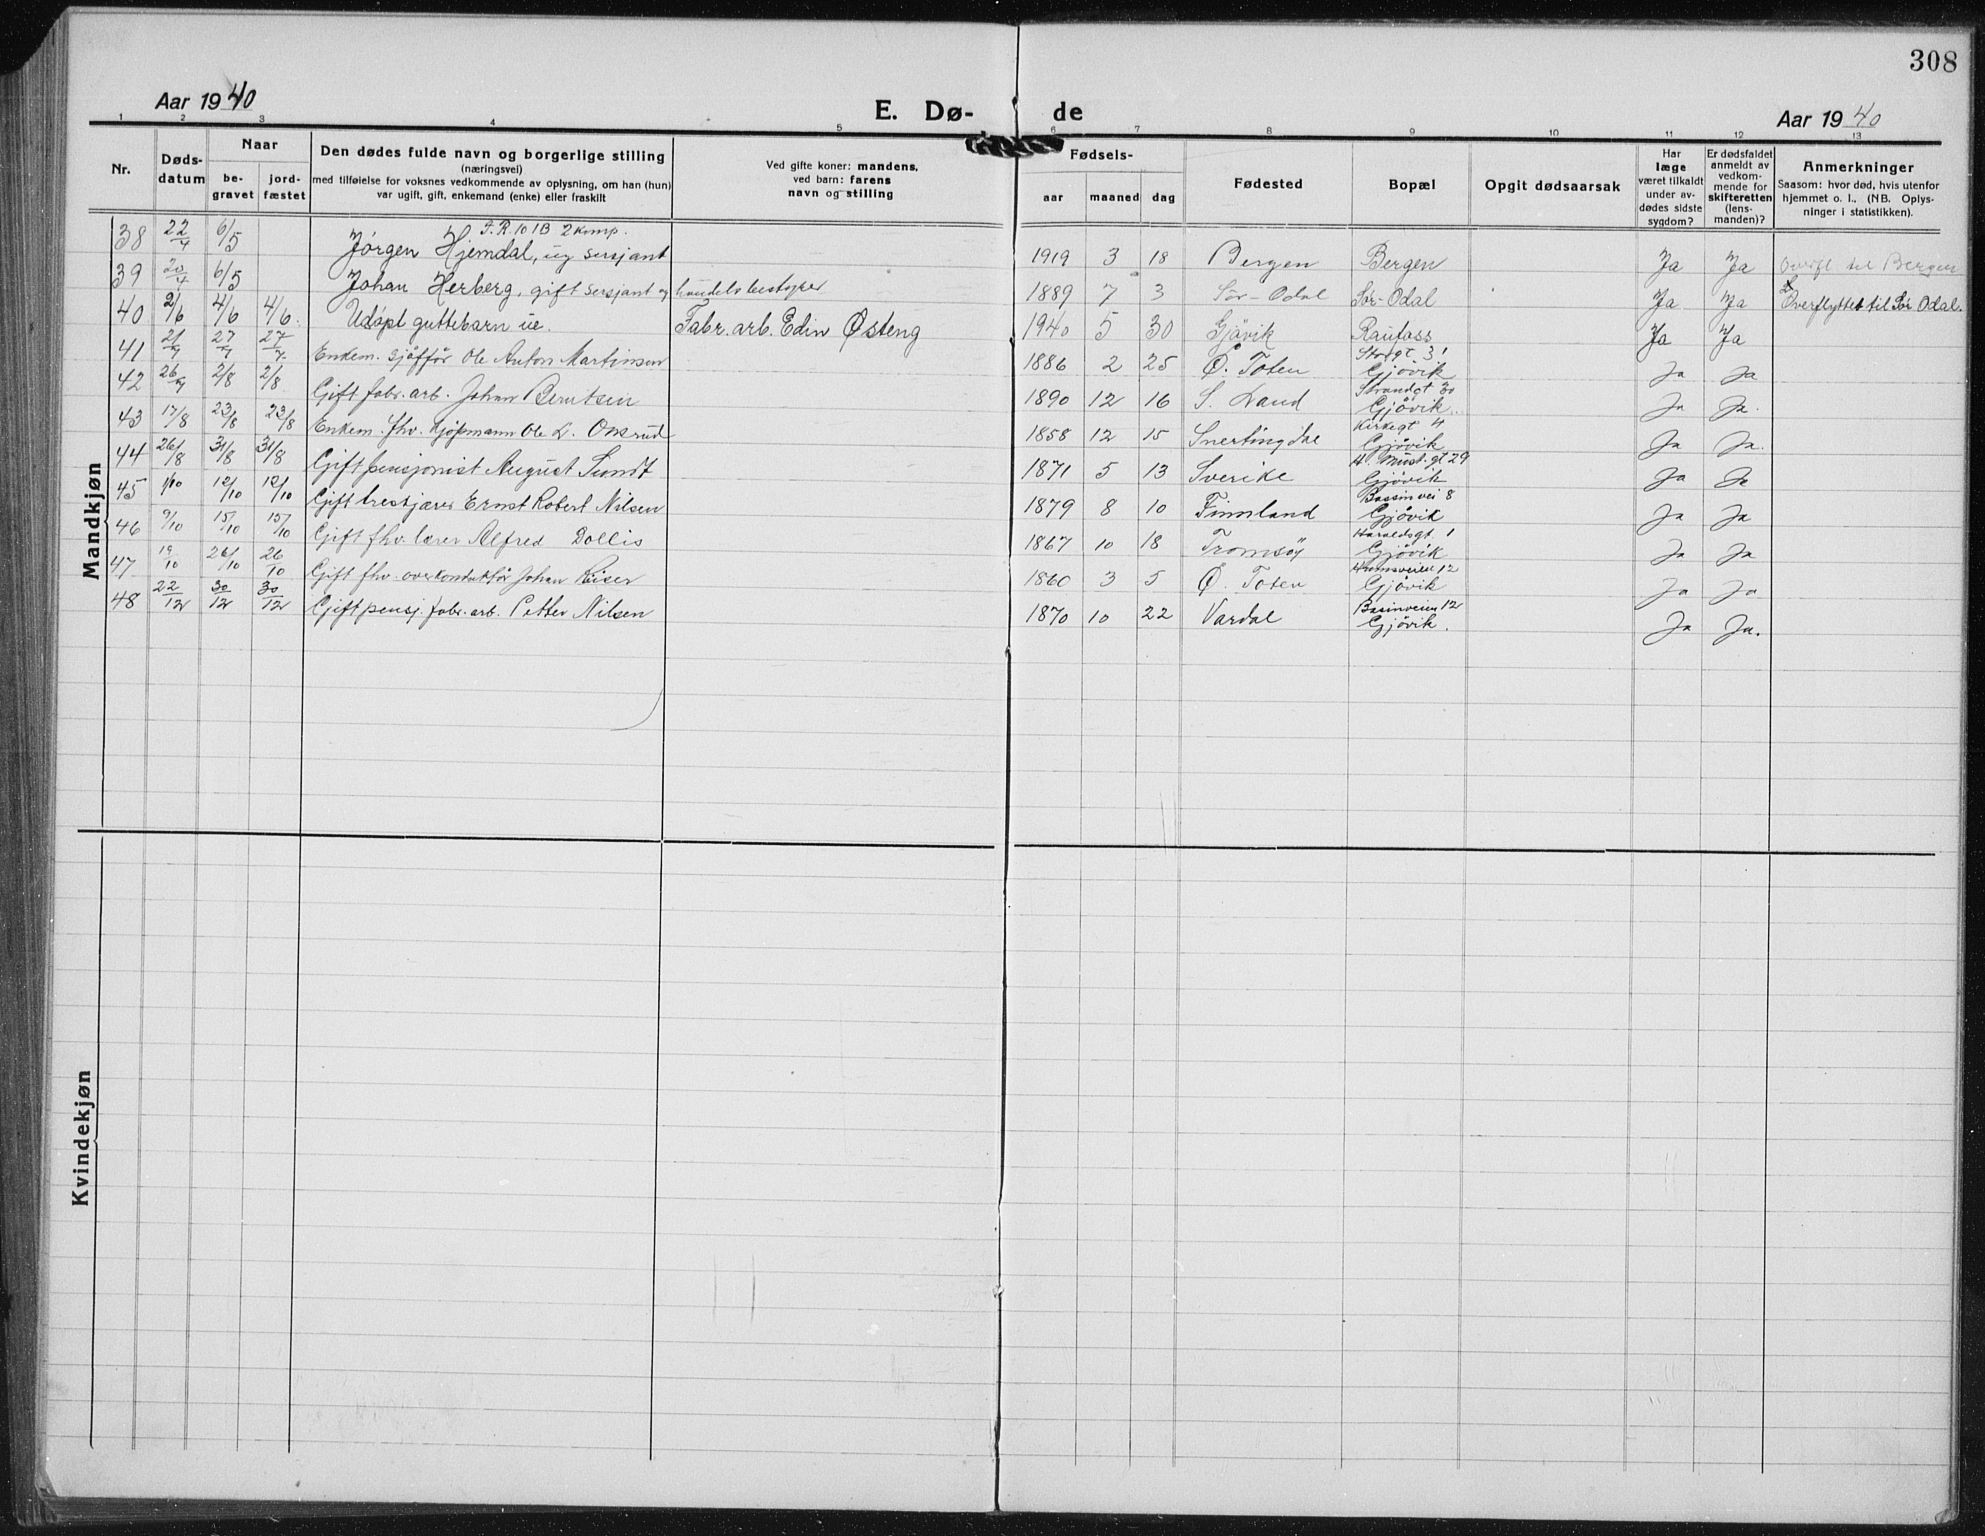 308
Aar 1940
E. Dø-de
Aar 1940
1 2 3 4 5 6 7 8 9 10 11 12 13
Nr.
Døds-datum
Naar
be-gravet
jord-fæstet
Den dødes fulde navn og borgerlige stilling
(næringsvei)
med tilføielse for voksnes vedkommende av oplysning, om han (hun)
var ugift, gift, enkemand (enke) eller fraskilt
Ved gifte koner: mandens,
ved barn: farens
navn og stilling
Fødsels-
aar maaned dag
Fødested
Bopæl
Opgit dødsaarsak
Har
læge
været tilkaldt
under av-
dødes sidste
sygdom?
Er dødsfaldet
anmeldt av
vedkom-
mende for
skifteretten
(lens-
manden)?
Anmerkninger
Saasom: hvor død, hvis utenfor
hjemmet o. l., (NB. Oplys-
ninger i statistikken).
Mandkjøn
I.R. 10 IB 2 komp.
38 22/4 6/5 Jørgen Hjemdal, ug sersjant 1919 3 18 Bergen Bergen Ja Ja til Bergen
39 20/4 6/5 Johan Herberg, gift sersjant og handelsbestyrer 1889 7 3 Sør-Odal Sør-Odal Ja Ja Overflyttet til Sør Odal.
40 2/6 4/6 4/6. Udøpt guttebarn ue. Fabr. arb. Edin Østeng 1940 5 30 Gjövik Raufoss Ja Ja
41 21/7 27/7 27/7 Enkem. sjåfför Ole Anton Martinsen 1886 2 25 Ø. Toten Storgt 31 Gjövik Ja Ja
42 26/7 2/8 2/8 Gift fabr. arb. Johan Berntsen 1890 12 16 S. Land Strandgt 30 Gjövik. Ja Ja.
43 17/8 23/8 23/8 Enkem. fhv. kjøpmann Ole L. Onsrud 1858 12 15 Snertingdal Kirkegt 4 Gjövik Ja Ja.
44 26/8 31/8 31/8 Gift pensjonist August Sundt 1871 5 13 Sverike H. Must. gt 29 Gjövik Ja Ja
45 1/10 12/10 12/10 Gift treskjærer Ernst Robert Nilsen 1879 8 10 Finnland Bassinvei 8 Gjövik Ja Ja
46 9/10 15/10 15/10 Gift fhv. lærer Alfred Dollis 1867 10 18 Tromsöy Haraldsgt. 1 Gjövik Ja Ja
47 19/10 26/10 26/10 Gift fhv. overkonduktör Johan Reiser 1860 3 5 Ø. Toten 12 Gjövik Ja Ja
48 22/12 30/12 30/12 Gift pensj. fabr. arb. Petter Nilsen 1870 10 22 Vardal Bassinveien 12 Gjövik. Ja Ja.
Kvindekjøn